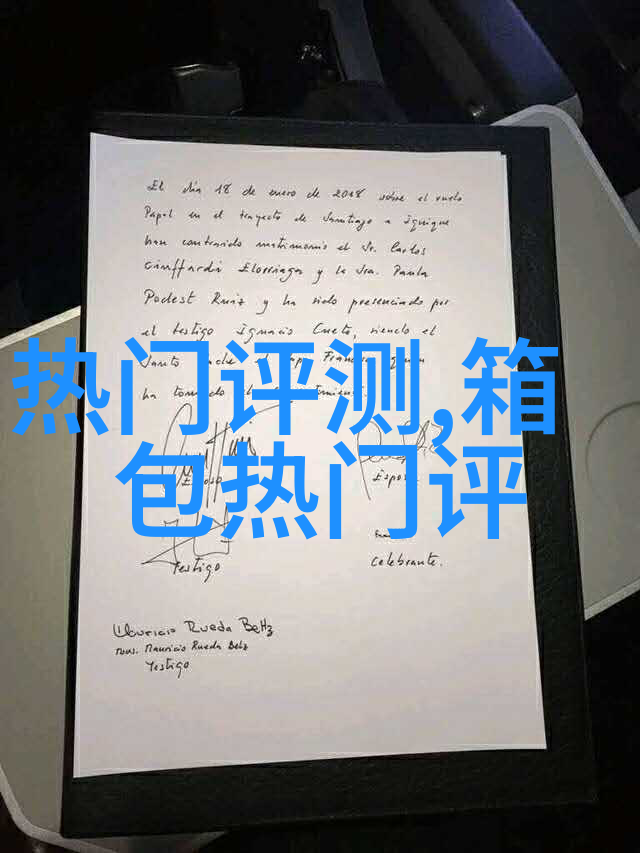 El día 18 de enero de 2018 sobre el vuelo
Papal en el trayecto de Santiago a Iquique
han contraido matrimonio el Sr. Carlos
Ciuffardi Elorriaga y la Sra. Paula
Podest Ruiz y ha sido presenciado por
el testigo Ignacio Cueto, siendo el
Santo
热门评测,箱
包热门评
Testigo
Celebrante.
Mauricio Rueda Beltz
Mons. Mauricio Rueda Beltz
Testigo